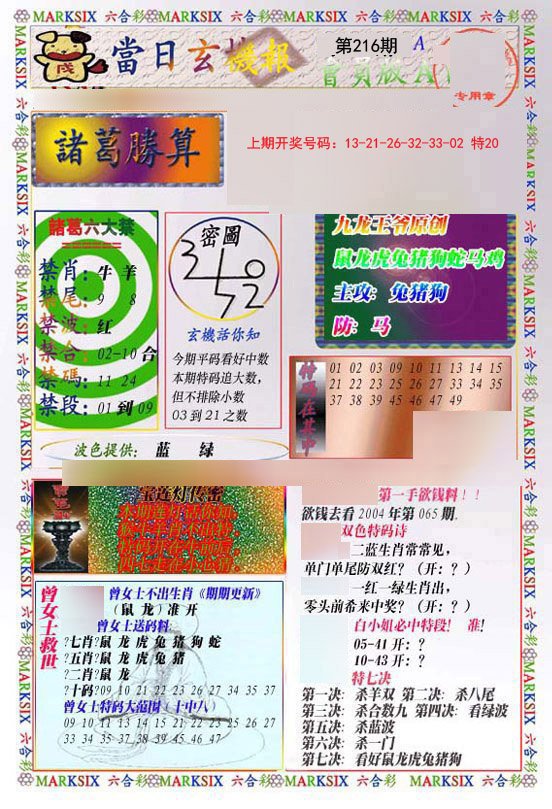 MARKSIX 六合彩 MARKSIX 六合彩 MARKSIX 六合彩 MARKSIX 六合彩
當日玄機報
第216期
A
會員版A
专用章
諸葛勝算
上期开奖号码：13-21-26-32-33-02 特20
諸葛六大禁
禁肖：牛 羊
禁尾：9 8
禁波：红
禁合：02-10合
禁碼：11 24
禁段：01到09
密圖
玄機話你知
今期平码看好中数
本期特码追大数，
但不排除小数
03到21之数
九龙王爷原创
鼠龙虎兔猪狗蛇马鸡
主攻：兔猪狗
防：马
特码在其中
01 02 03 09 10 11 13 14 15
21 22 23 25 26 27 33 34 35
37 38 39 45 46 47 49
波色提供： 蓝 绿
宝莲灯传密
第一手欲钱料！！
欲钱去看2004年第065期.
双色特码诗
二蓝生肖常常见，
单门单尾防双红？（开：？）
一红一绿生肖出，
零头前希来中奖？（开：？）
白小姐必中特段！ 准!
05-41 开：？
10-43 开：？
特七决
第一决：杀羊双 第二决：杀八尾
第三决：杀合数九 第四决：看绿波
第五决：杀蓝波
第六决：杀一门
第七决：看好鼠龙虎兔猪狗
曾女士救世
曾女士不出生肖《期期更新》
（鼠 龙）准 开
曾女士送码料
?七肖?鼠 龙 虎 兔 猪 狗 蛇
?五肖?鼠 龙 虎 兔 猪
?二肖?鼠 龙
?十码?09 10 21 22 23 26 27 34 35 37
曾女士特码大范围（十中八）
09 10 11 13 14 15 21 22 23 25 26 27
33 34 35 37 38 39 45 46 47
MARKSIX 六合彩 MARKSIX 六合彩 MARKSIX 六合彩 MARKSIX 六合彩